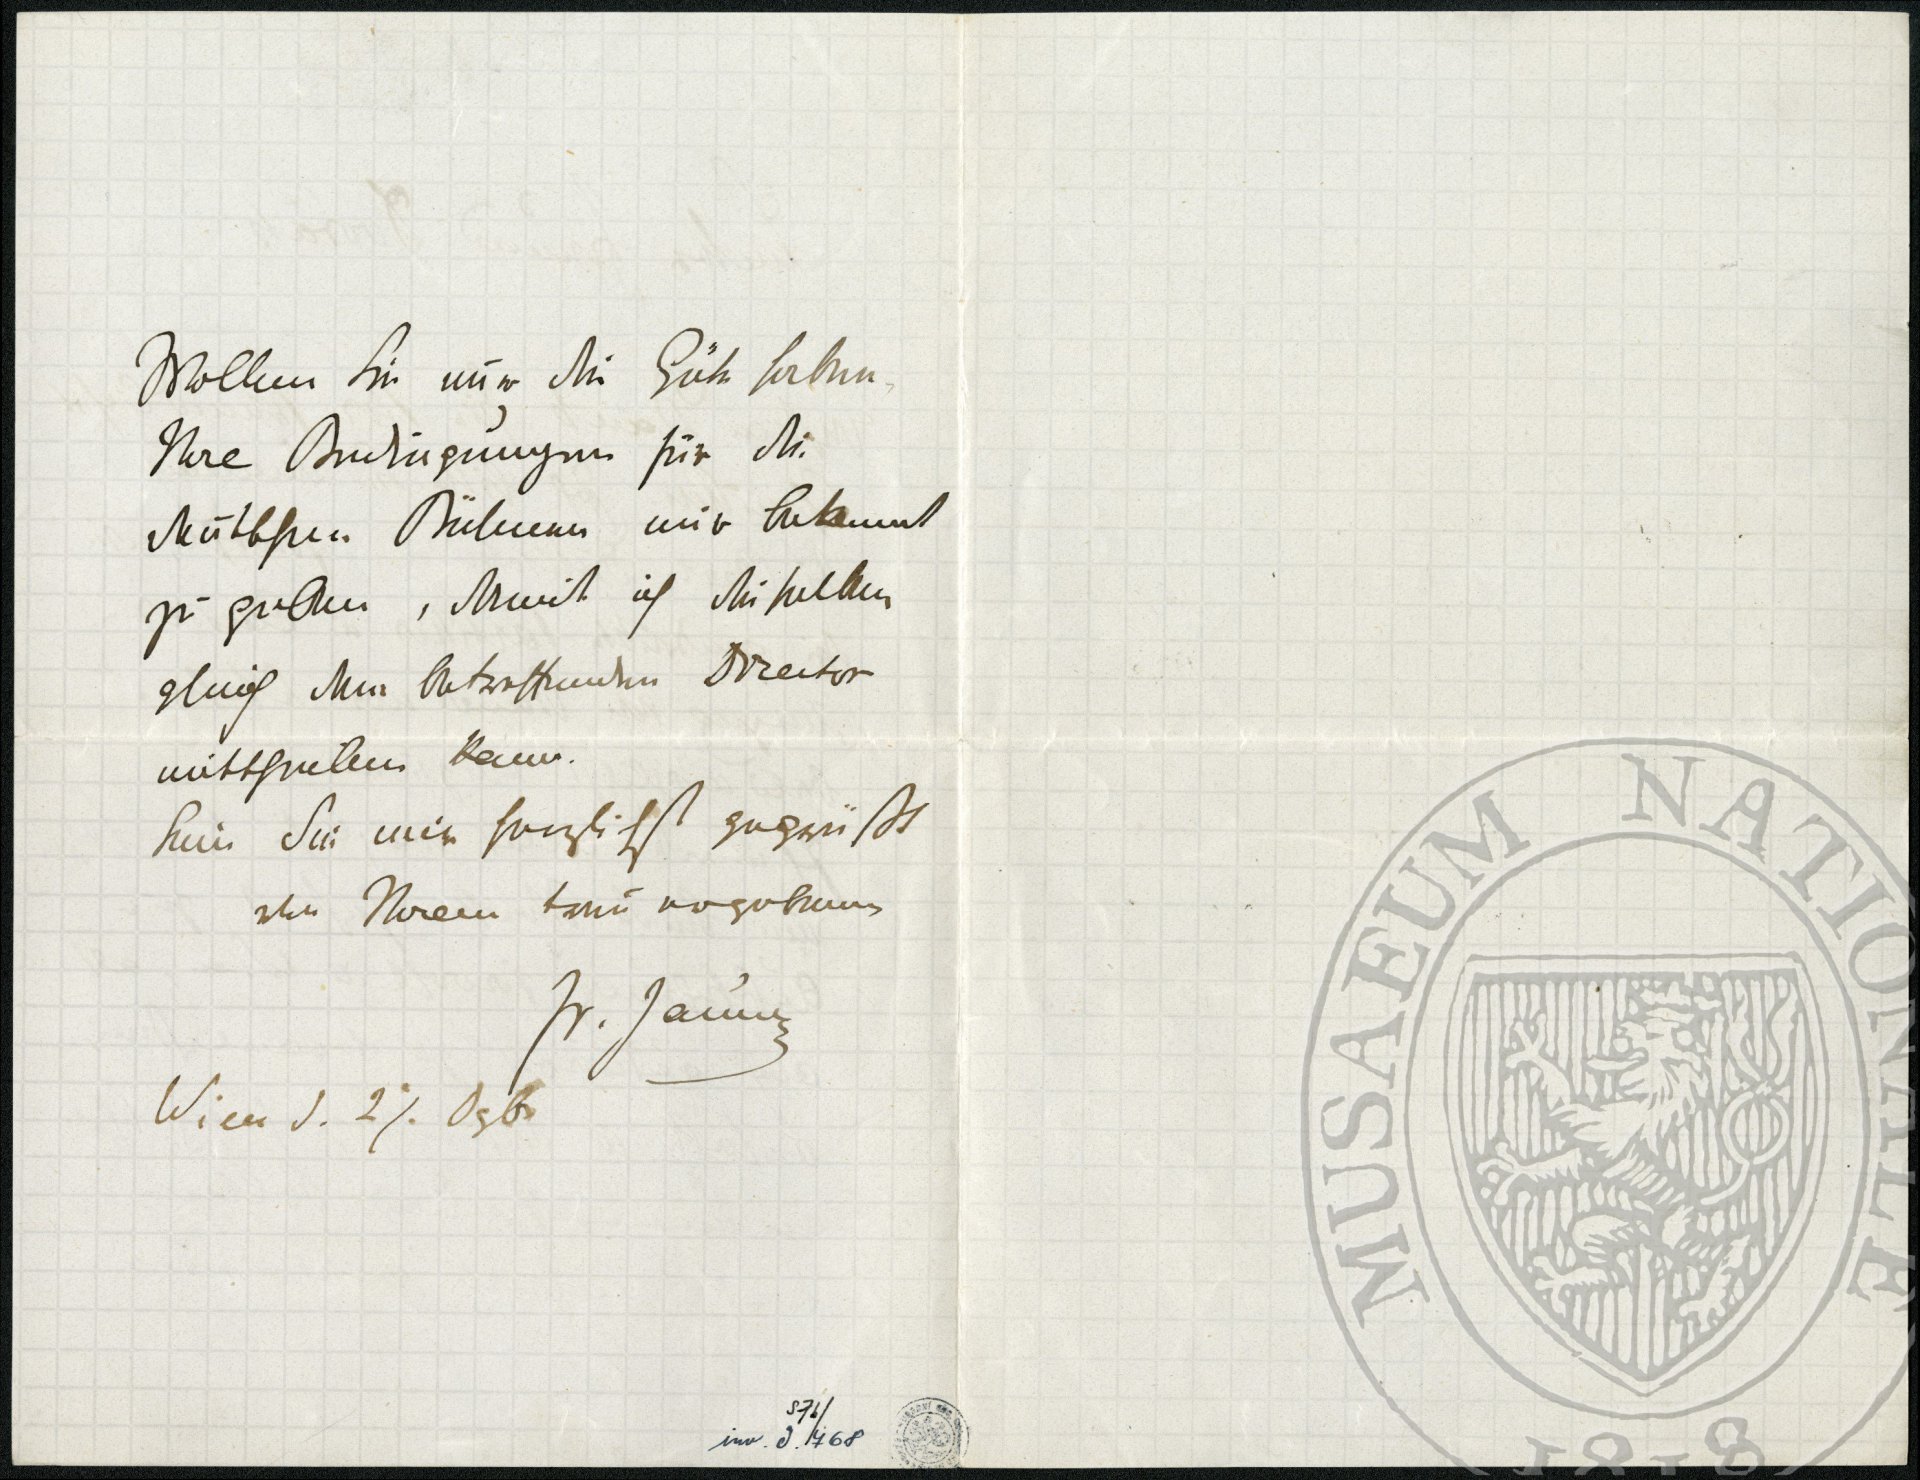 Wollen Sie nur die Güte haben
Ihre Bedingungen für die
deutschen Bühnen mir bekannt
zu geben, damit ich dieselben
gleich dem betreffenden Director
mittheilen kann.
Sein Sie mir herzlichst gegrüßt
von Ihrem treu ergebenen
Fr. Jauner
Wien d. 27. Dzb
576/
inv. č. 1768
MUSAEUM NATIONALE
1818